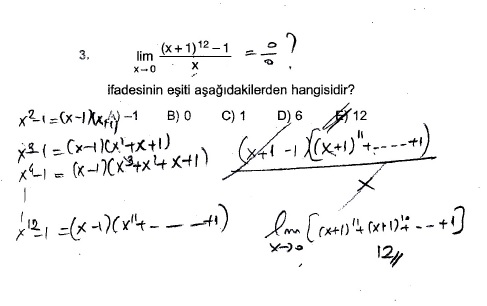 3. lim x→0 (x+1)^12 – 1 / x = 0/0 ?
ifadesinin eşiti aşağıdakilerden hangisidir?
A) –1 B) 0 C) 1 D) 6 E) 12
x²-1 = (x-1)(x+1)
x³-1 = (x-1)(x²+x+1)
x⁴-1 = (x-1)(x³+x²+x+1)
x¹²-1 = (x-1)(x¹¹+ - - - +1)
(x+1-1)[(x+1)¹¹+----+1)
x
lim x→0 [(x+1)¹¹+(x+1)¹⁰+--+1]
12